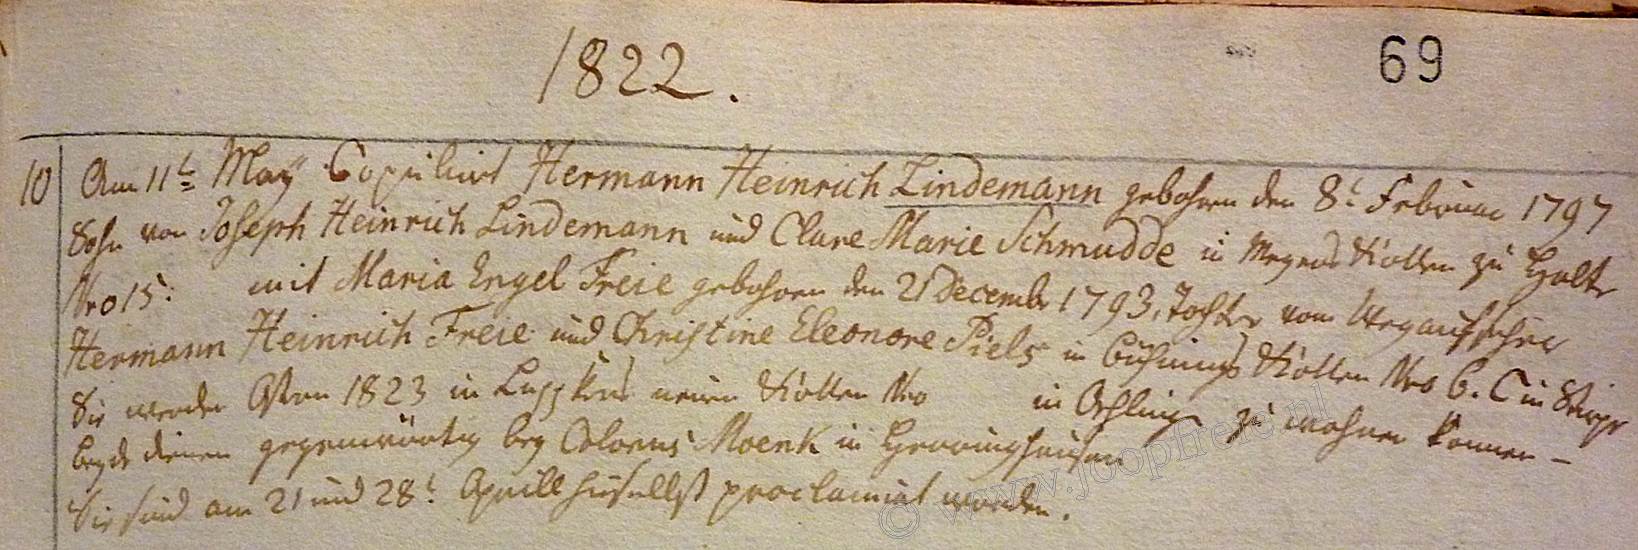 1822.
69
10 Am 11t. May Copulirt Hermann Heinrich Lindemann gebohren den 8t. Februar 1797
Sohn von Joseph Heinrich Lindemann und Clare Marie Schmudde in Meyers Kotten zu Halte
Nro 15. mit Maria Engel Freie gebohren den 21 December 1793, Tochter vom Wegaufseher
Hermann Heinrich Freie und Christine Eleonore Piels in Kotten Nro 6. C in
Sie werden Ostern 1823 in neuen Kotten Nro in Oehlingen zu wohnen kommen –
beyde dienen gegenwärtig bey Colonus Moenk in Herringhausen
Sie sind am 21 und 28t. Aprill hieselbst proclamirt worden.
© www.joopfreie.nl